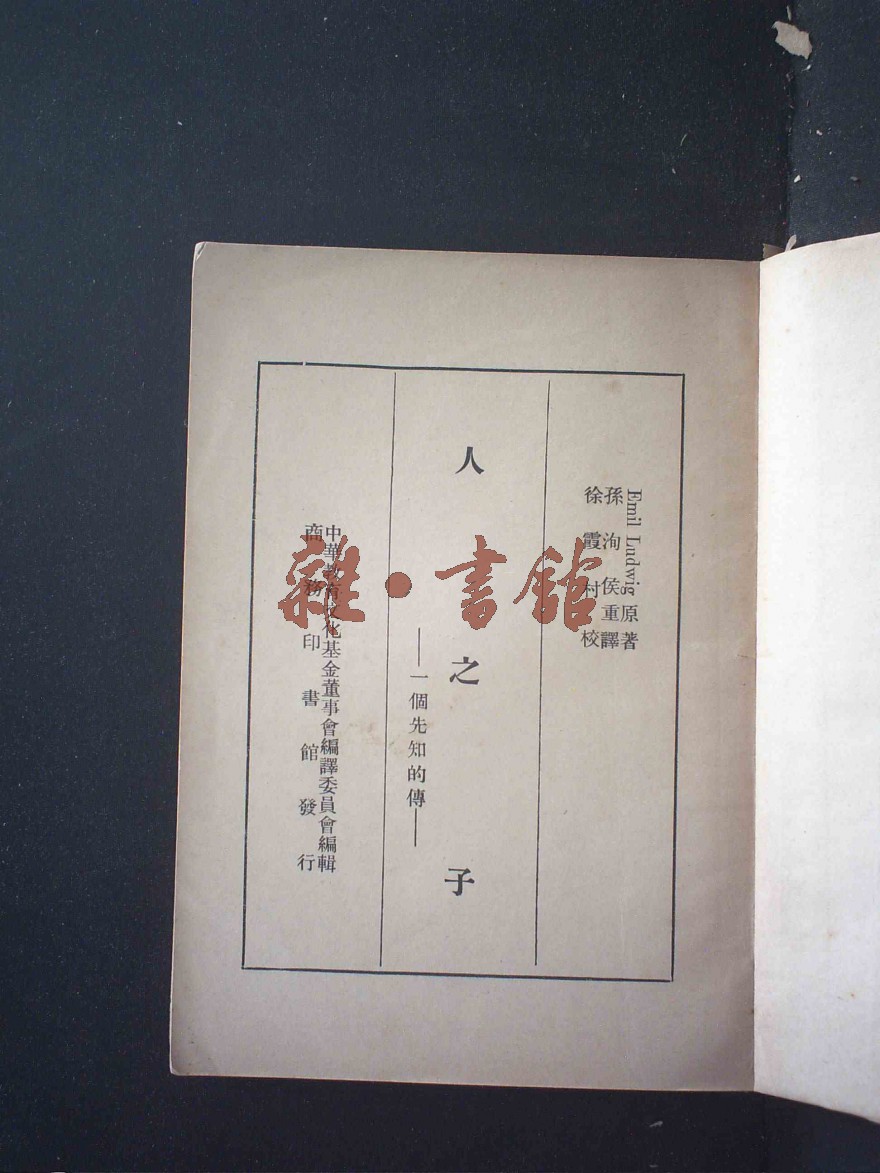 Emil Ludwig 原著
孫洵侯重譯
徐霞村校
人之子
——一個先知的傳——
中華教育文化基金董事會編譯委員會編輯
商務印書館發行
雜·書館